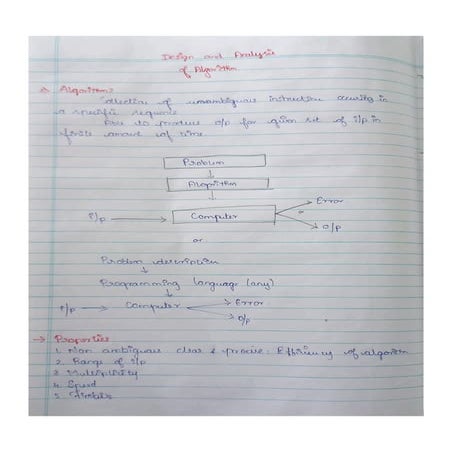 Design and Analysis
of Algorithm
Algorithm:
Collection of unambiguous instruction occuring in
a specific sequence
to produce o/p for given set of i/p in
finite amount of time
Problem
Algorithm
i/p Computer Error
or o/p
or
Problem description
Programming language (any)
i/p Computer Error
o/p
→ Properties
1. Non ambiguous clear & precise: Efficiency of algorithm
2. Range of i/p
3. Multiplicity
4. Speed
5.